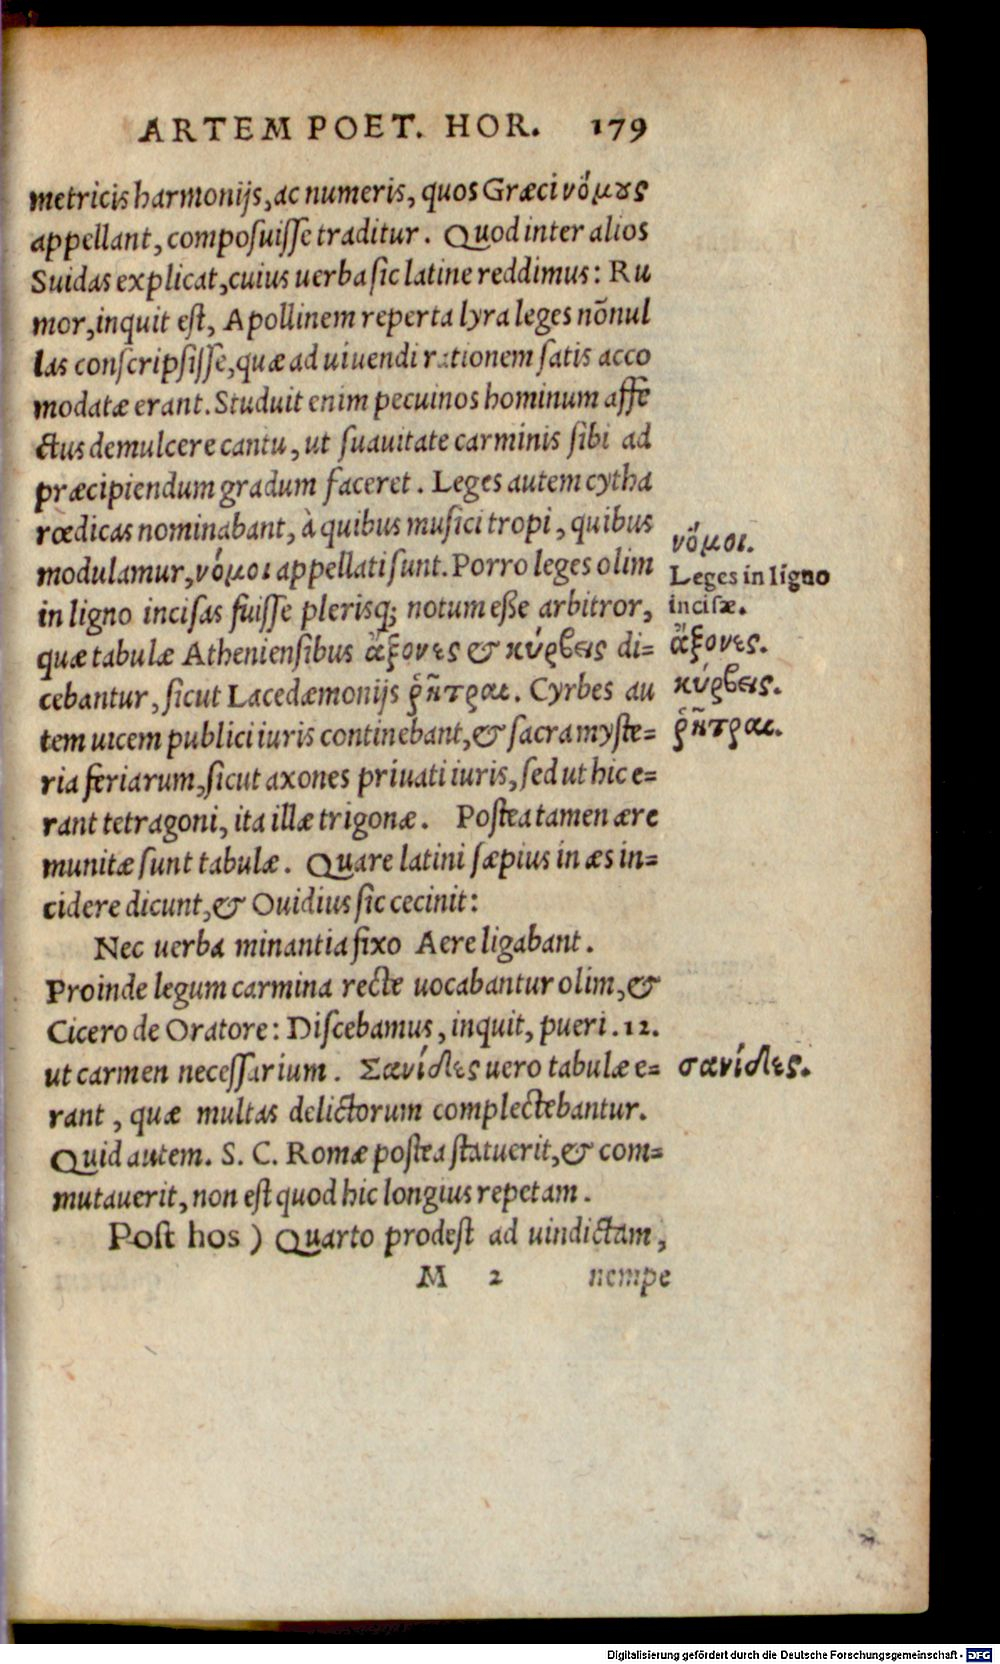 ARTEM POET. HOR. 179
metricis harmonijs, ac numeris, quos Græci νόμȣς
appellant, composuisse traditur. Quod inter alios
Suidas explicat, cuius uerba sic latine reddimus: Ru
mor, inquit est, Apollinem reperta lyra leges nōnul
las conscripsisse, quæ ad uiuendi rationem satis acco
modatæ erant. Studuit enim pecuinos hominum affe
ctus demulcere cantu, ut suauitate carminis sibi ad
præcipiendum gradum faceret. Leges autem cytha
rœdicas nominabant, à quibus musici tropi, quibus
modulamur, νόμοι appellati sunt. Porro leges olim
νόμοι.
Leges in ligno
in ligno incisas fuisse plerisq; notum esse arbitror,
incisæ.
quæ tabulæ Atheniensibus ἄξονες & κύρβεις di=
ἄξονες.
cebantur, sicut Lacedæmonijs ῥῆτραι. Cyrbes au
κύρβεις.
tem uicem publici iuris continebant, & sacra myste=
ῥῆτραι.
ria feriarum, sicut axones priuati iuris, sed ut hic e=
rant tetragoni, ita illæ trigonæ. Postea tamen ære
munitæ sunt tabulæ. Quare latini sæpius in æs in=
cidere dicunt, & Ouidius sic cecinit:
Nec uerba minantia fixo Aere ligabant.
Proinde legum carmina recte uocabantur olim, &
Cicero de Oratore: Discebamus, inquit, pueri .12.
ut carmen necessarium. Σανίδες uero tabulæ e=
σανίδες.
rant, quæ multas delictorum complectebantur.
Quid autem. S. C. Romæ postea statuerit, & com=
mutauerit, non est quod hic longius repetam.
Post hos) Quarto prodest ad uindictam,
M 2 nempe
Digitalisierung gefördert durch die Deutsche Forschungsgemeinschaft - DFG